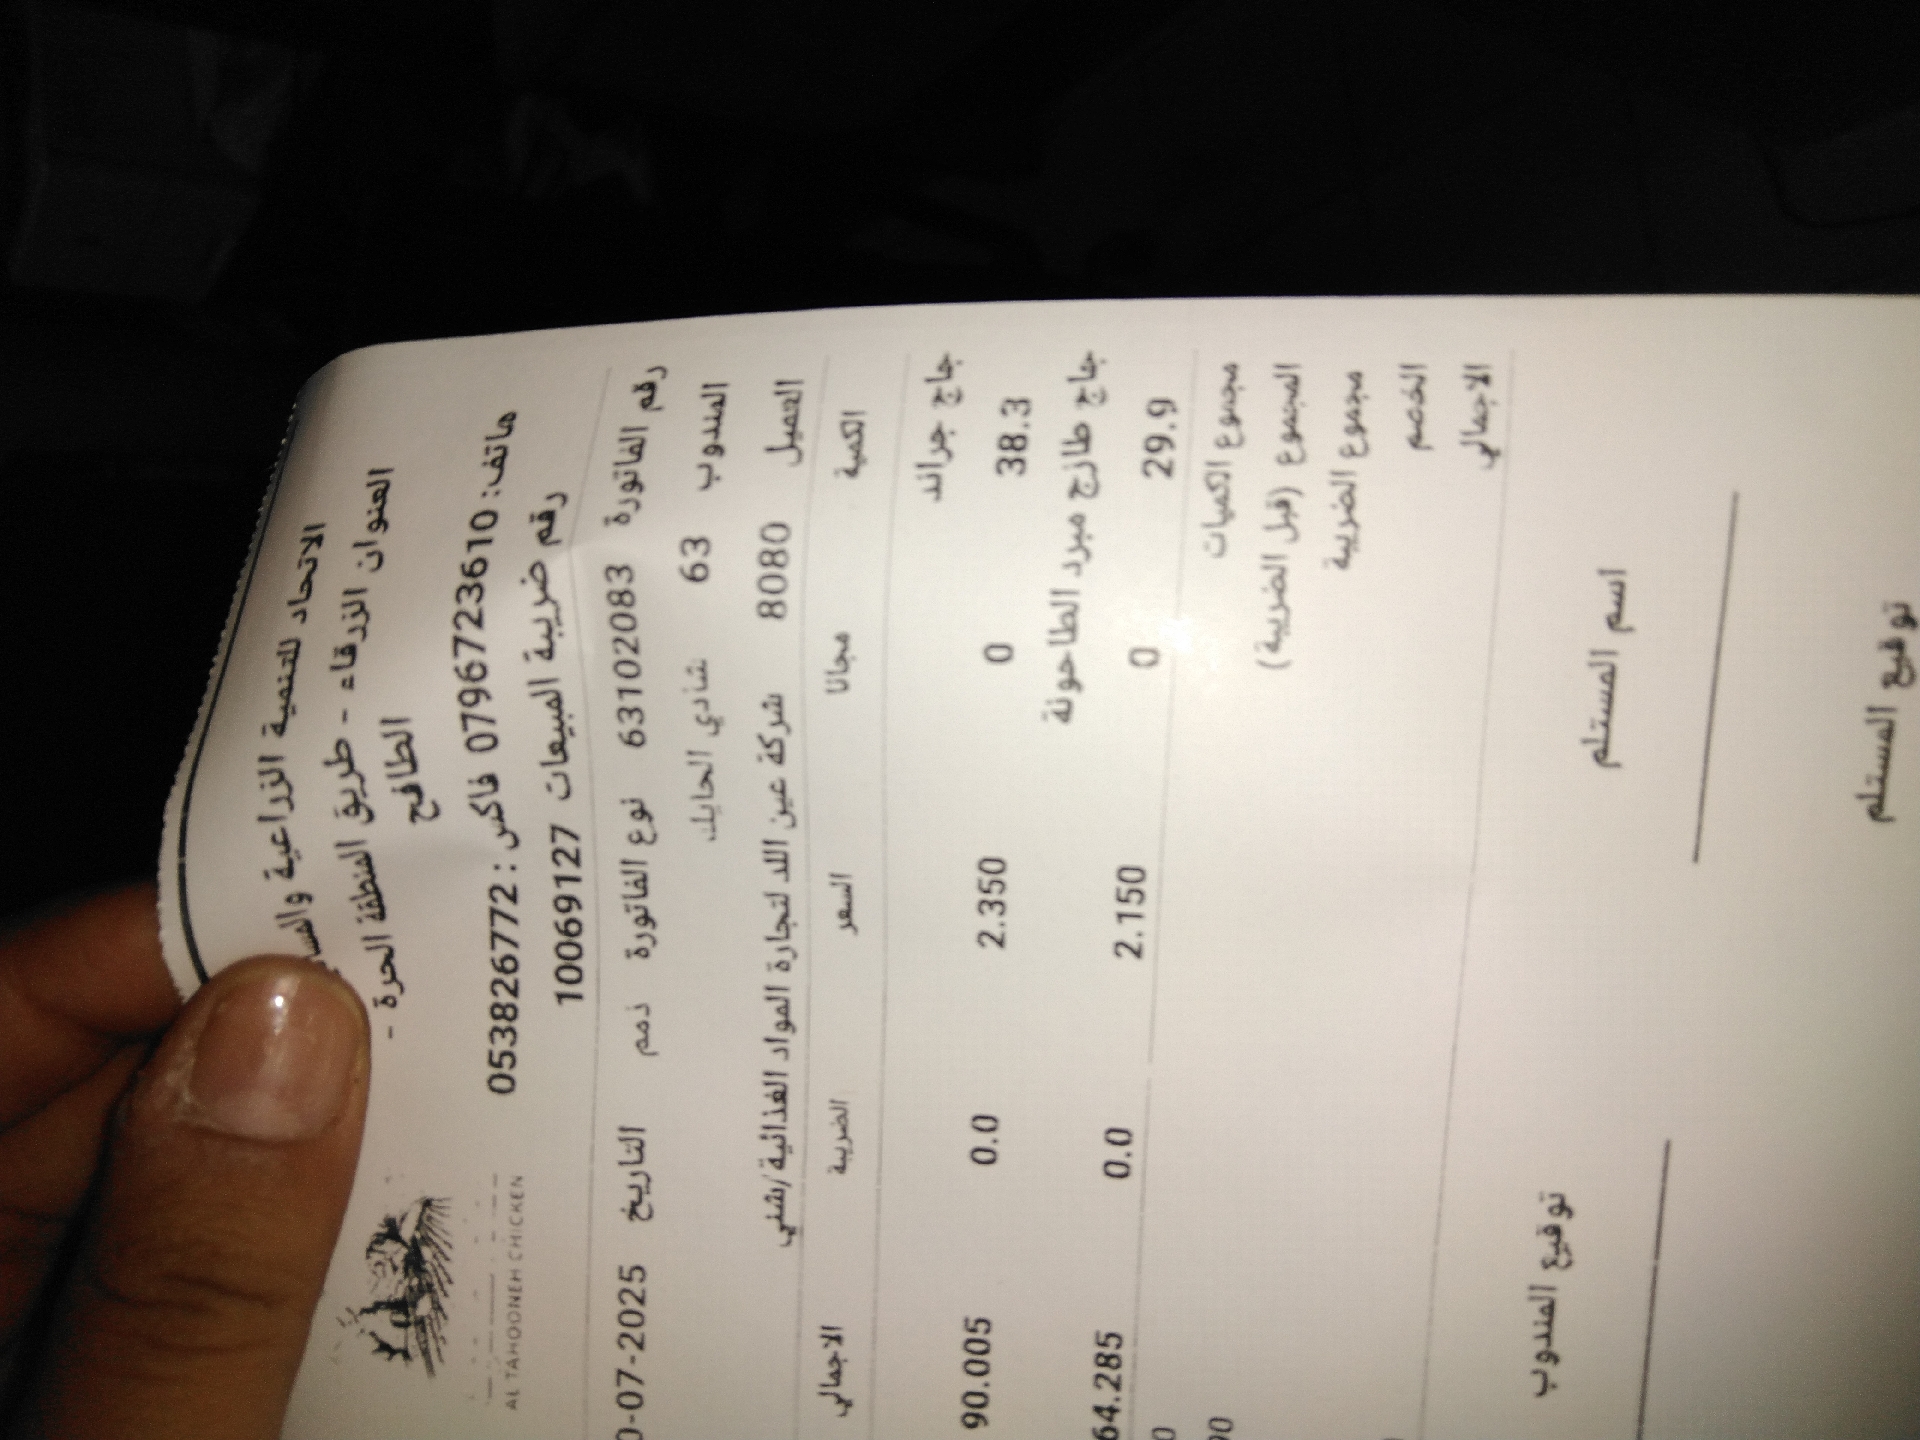 الاتحاد للتنمية الزراعية
العنوان الزرقاء - طريق المنطقة الحرة -
الطافح
هاتف: 0796723610 فاكس: 053826772
رقم ضريبة المبيعات 10069127
AL TAHOONEH CHICKEN
رقم الفاتورة 63102083 نوع الفاتورة ذمم التاريخ 0-07-2025
المندوب 63 شادي الحايك
العميل 8080 شركة عين اللد لتجارة المواد الغذائية/شني
الكمية مجانا السعر الضريبة الاجمالي
جاج جراند
38.3 0 2.350 0.0 90.005
جاج طازج مبرد الطاحونة
29.9 0 2.150 0.0 64.285
مجموع الكميات
المجموع (قبل الضريبة)
مجموع الضريبة
الخصم
الاجمالي
اسم المستلم توقيع المندوب
توقيع المستلم